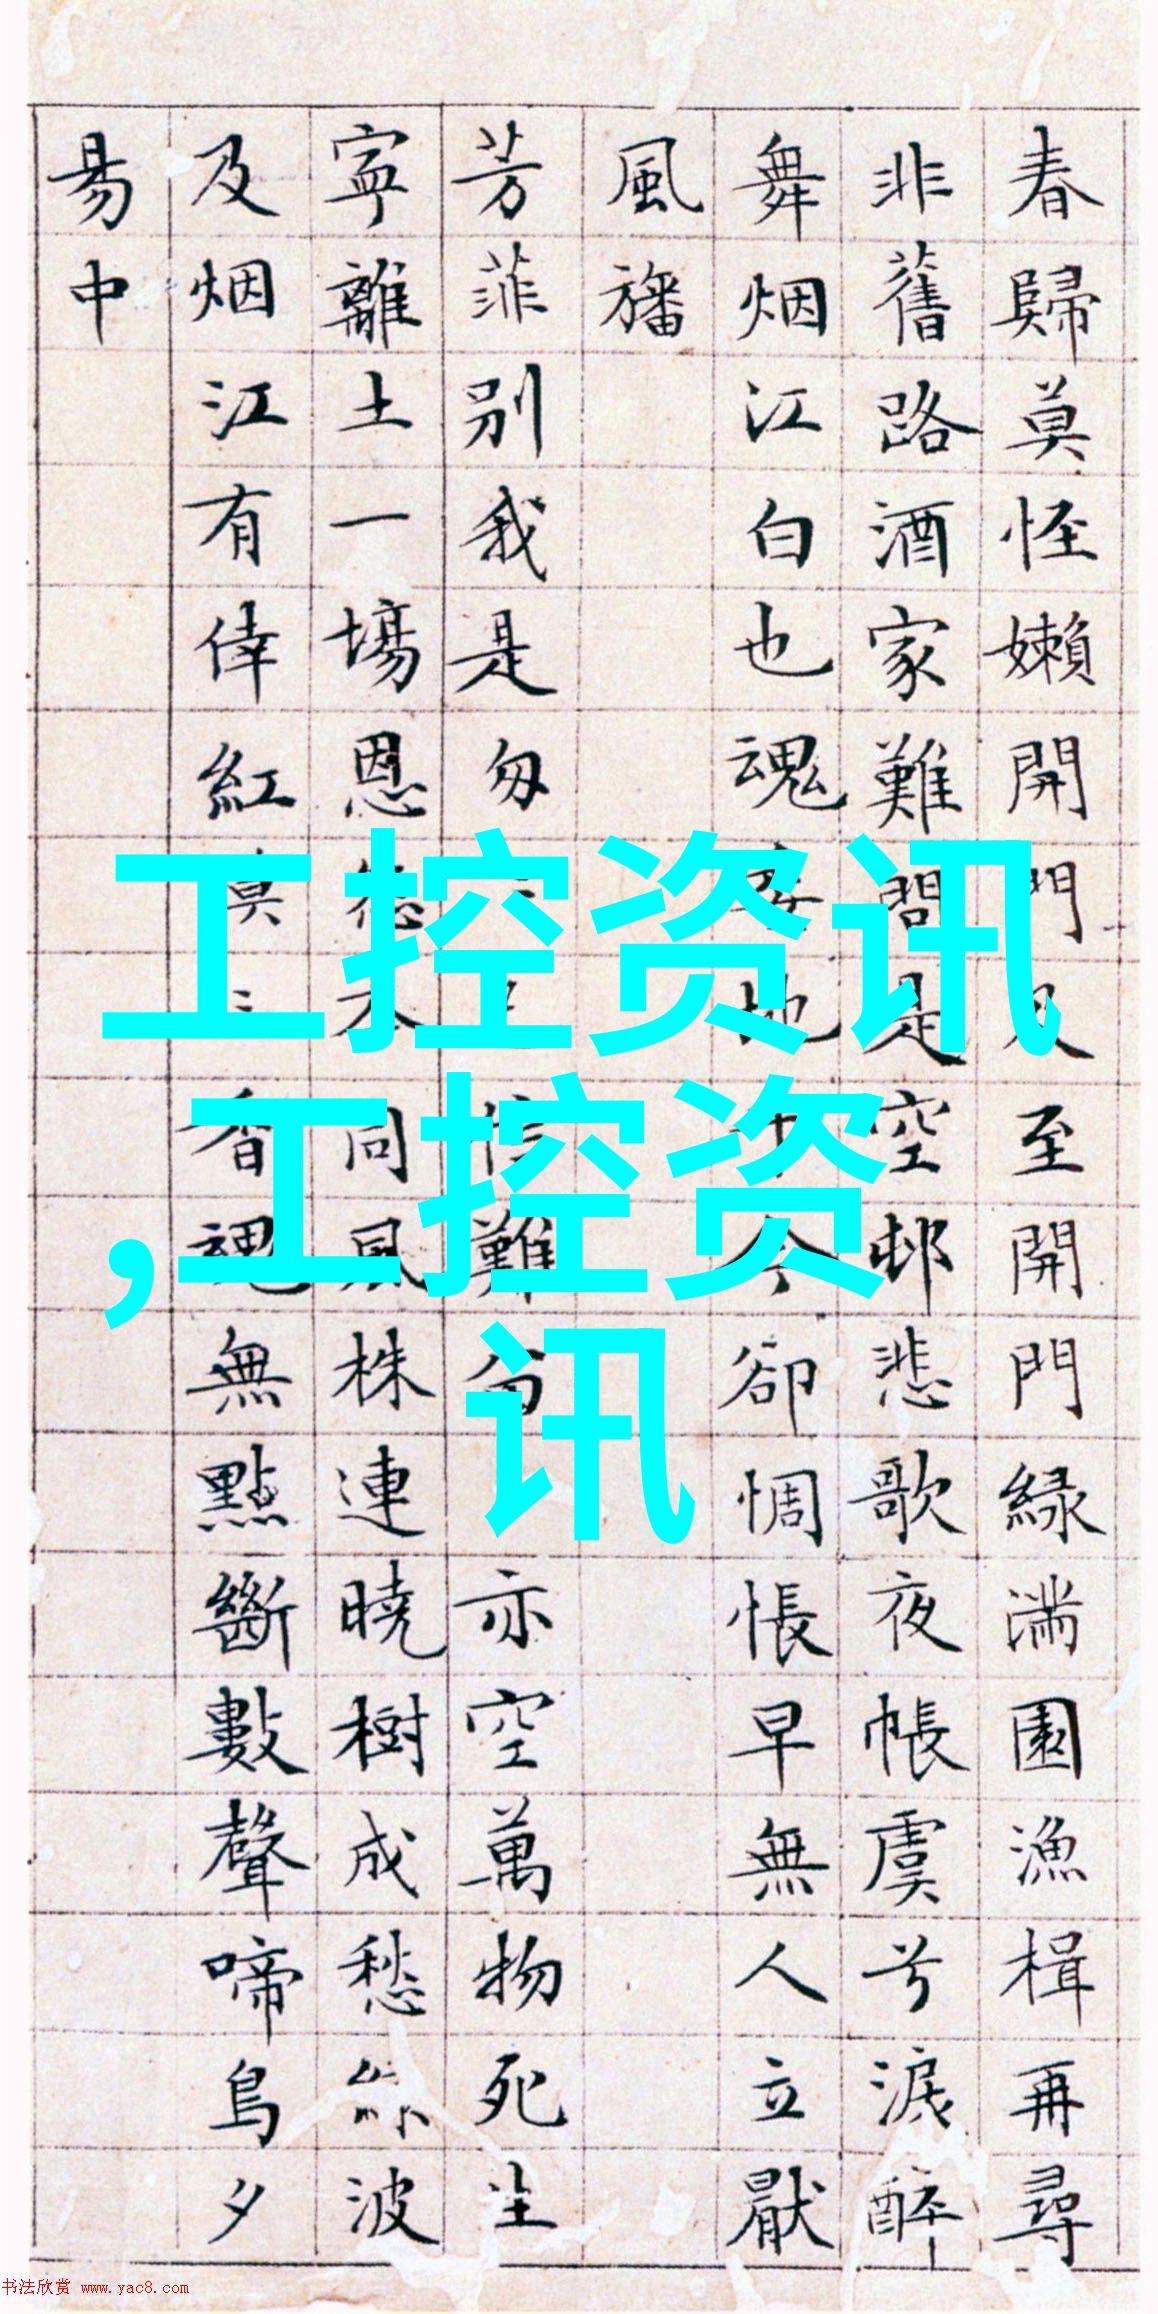 春歸莫怪嬾開門及至開門緑滿園漁楫再尋
非舊路酒家難問是空邨悲歌夜帳虞兮淚醉
舞烟江白也魂委地于今卻惆悵早無人立厭
風旛
芳菲別我是匆匆 難 亦空萬物死生
寧離土一場恩德不同風株連曉樹成愁綠波
及烟江有倖紅漠漠香魂無點斷數聲啼鳥夕
易中
工控资讯
,工控资
讯
书法欣赏 www.yac8.com